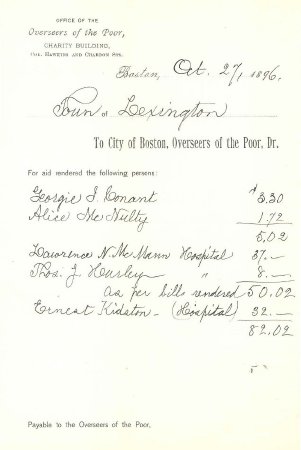 OFFICE OF THE
Overseers of the Poor,
CHARITY BUILDING,
COR. HAWKINS AND CHARDON STS.
Boston, Oct. 27, 1896.
Town of Lexington
To City of Boston, Overseers of the Poor, Dr.
For aid rendered the following persons:
Georgie S. Conant $3.30
Alice Mc Nulty 1.72
5.02
Lawrence N. Mc Mann Hospital 37.—
Thos. J. Hurley " 8.—
as per bills rendered 50.02
Ernest Kidston — (Hospital) 32.—
82.02
Payable to the Overseers of the Poor,